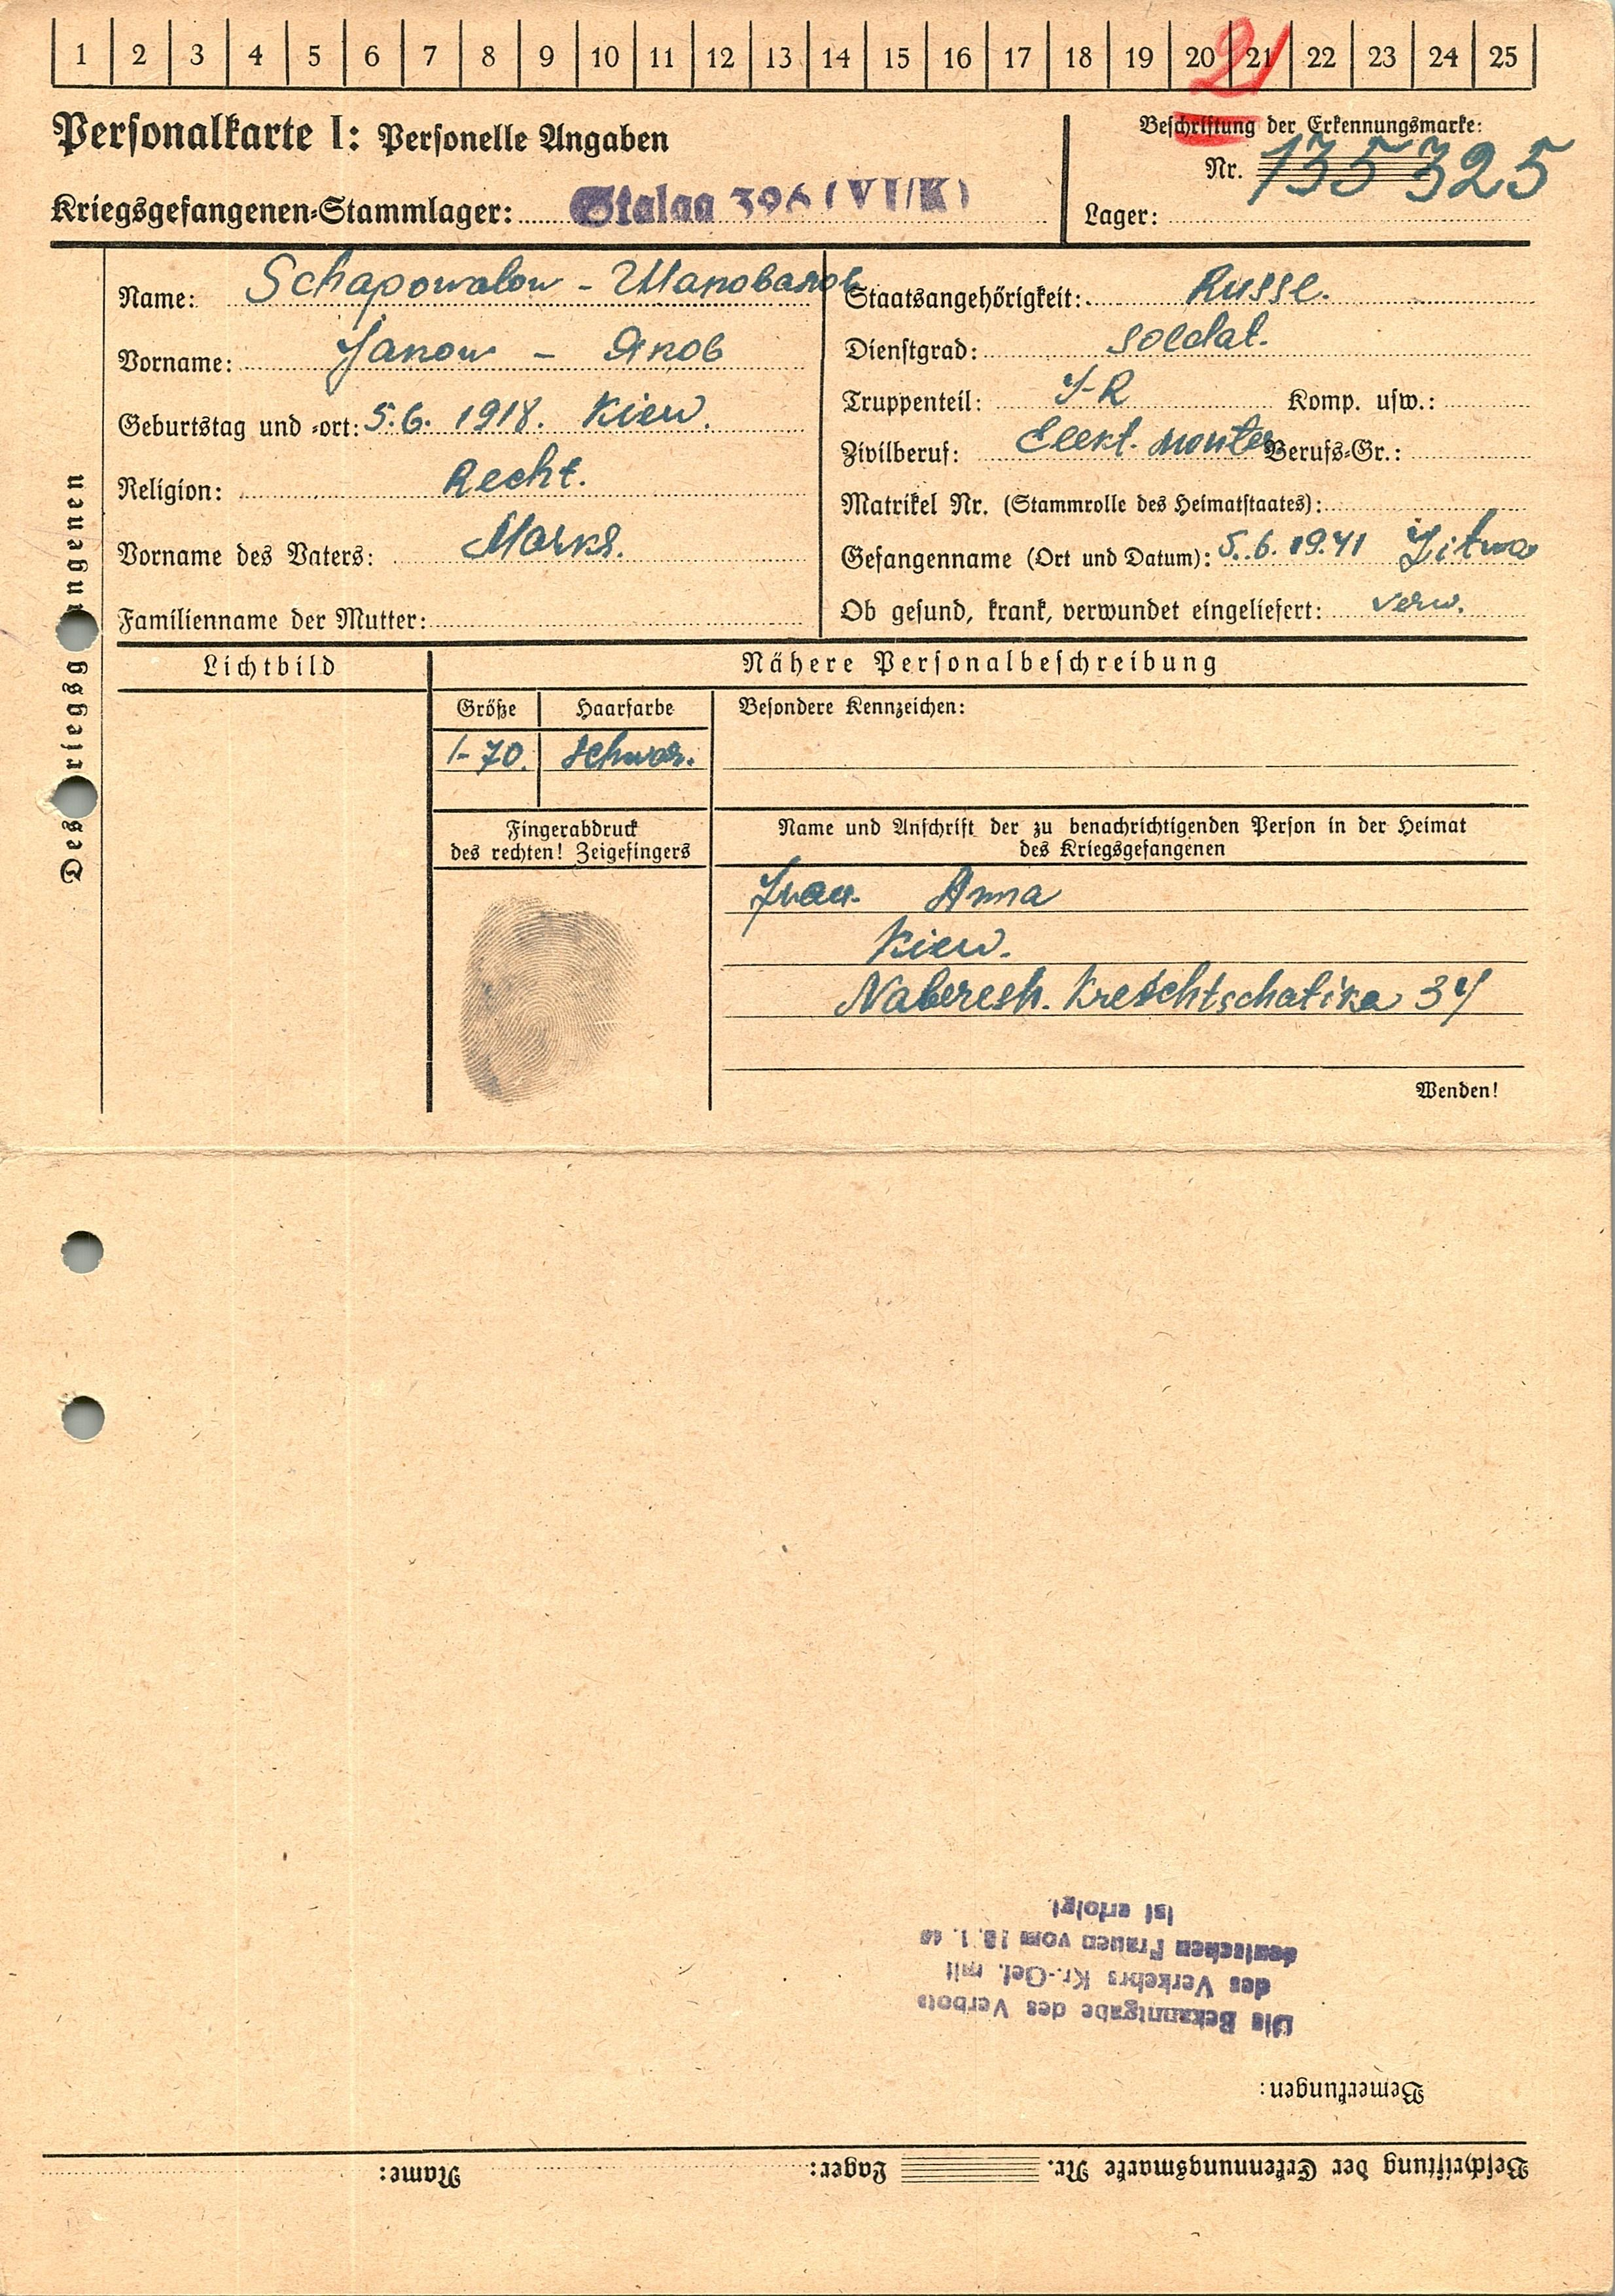 1 2 3 4 5 6 7 8 9 10 11 12 13 14 15 16 17 18 19 20 21 22 23 24 25
21
Personalkarte I: Personelle Angaben
Kriegsgefangenen-Stammlager: Stalag 326 (VI/K)
Beschriftung der Erkennungsmarke:
Nr. 135325
Lager:
Des Kriegsgefangenen
Name: Schapowalow - Шаповалов
Vorname: Jakow - Яков
Geburtstag und -ort: 5.6. 1918. Kiew.
Religion: Recht.
Vorname des Vaters: Marks.
Familienname der Mutter:
Staatsangehörigkeit: Russe.
Dienstgrad: Soldat.
Truppenteil: J-R Komp. usw.:
Zivilberuf: Elekt. monter Berufs-Gr.:
Matrikel Nr. (Stammrolle des Heimatstaates):
Gefangennahme (Ort und Datum): 5.6.1941 Litwa
Ob gesund, krank, verwundet eingeliefert: verw.
Lichtbild
Nähere Personalbeschreibung
Größe Haarfarbe Besondere Kennzeichen:
1-70. schwar.
Fingerabdruck
des rechten! Zeigefingers
Name und Anschrift der zu benachrichtigenden Person in der Heimat
des Kriegsgefangenen
Frau. Anna
Kiew.
Naberesh. Kreschtschatika 34
Wenden!
Beschriftung der Erkennungsmarke Nr. Lager: Name:
Bemerkungen:
Die Bekanntgabe des Verbots
des Verkehrs Kr.-Gef. mit
deutschen Frauen vom
ist erfolgt.